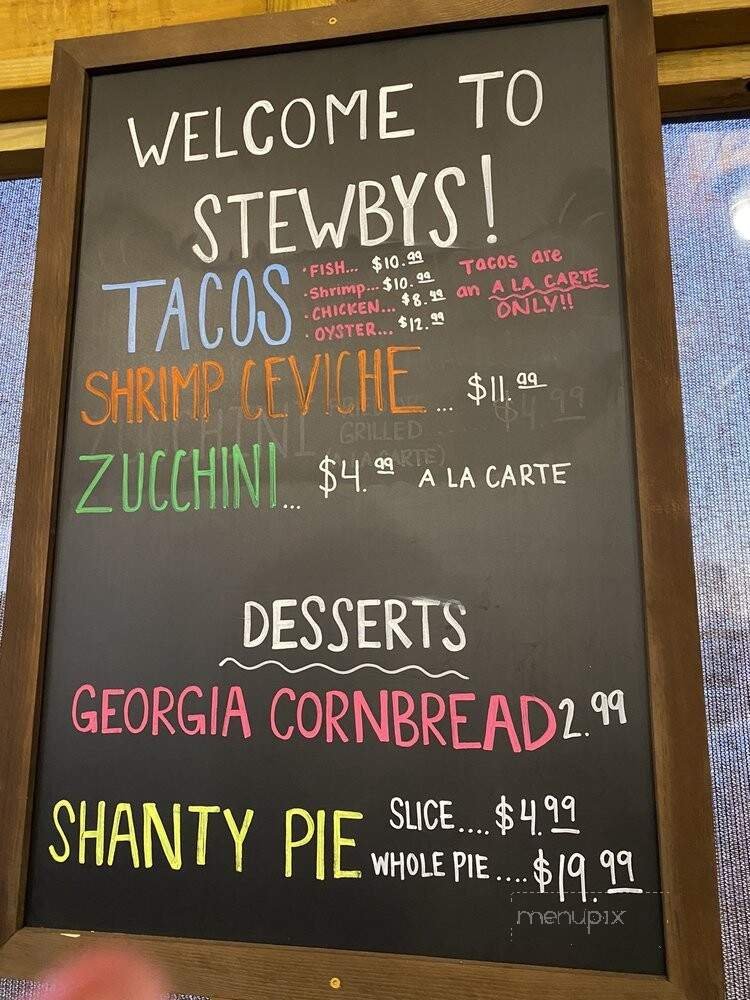 WELCOME TO
STEWBYS!
TACOS
· FISH... $10.99
· Shrimp... $10.99
· CHICKEN... $8.99
· OYSTER... $12.99
Tacos are
an A LA CARTE
ONLY!!
SHRIMP CEVICHE ... $11.99
$4.99
ZUCCHINI
GRILLED
ZUCCHINI... $4.99 A LA CARTE
DESSERTS
GEORGIA CORNBREAD 2.99
SHANTY PIE
SLICE.... $4.99
WHOLE PIE.... $19.99
menupix